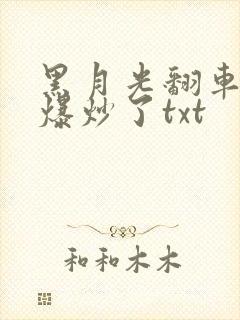 黑月光翻車
爆炒了txt
和和木木